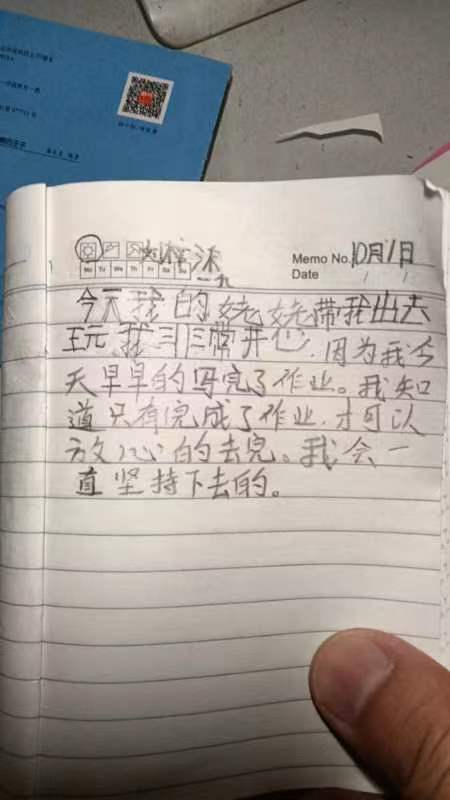 Memo No. 10月1日
Mo Tu We Th Fr Sa Su
Date / /
今天我的姥姥带我出去
玩,我非常开心,因为我今
天早早的写完了作业。我知
道只有完成了作业,才可以
放心的去完。我会一
直坚持下去的。